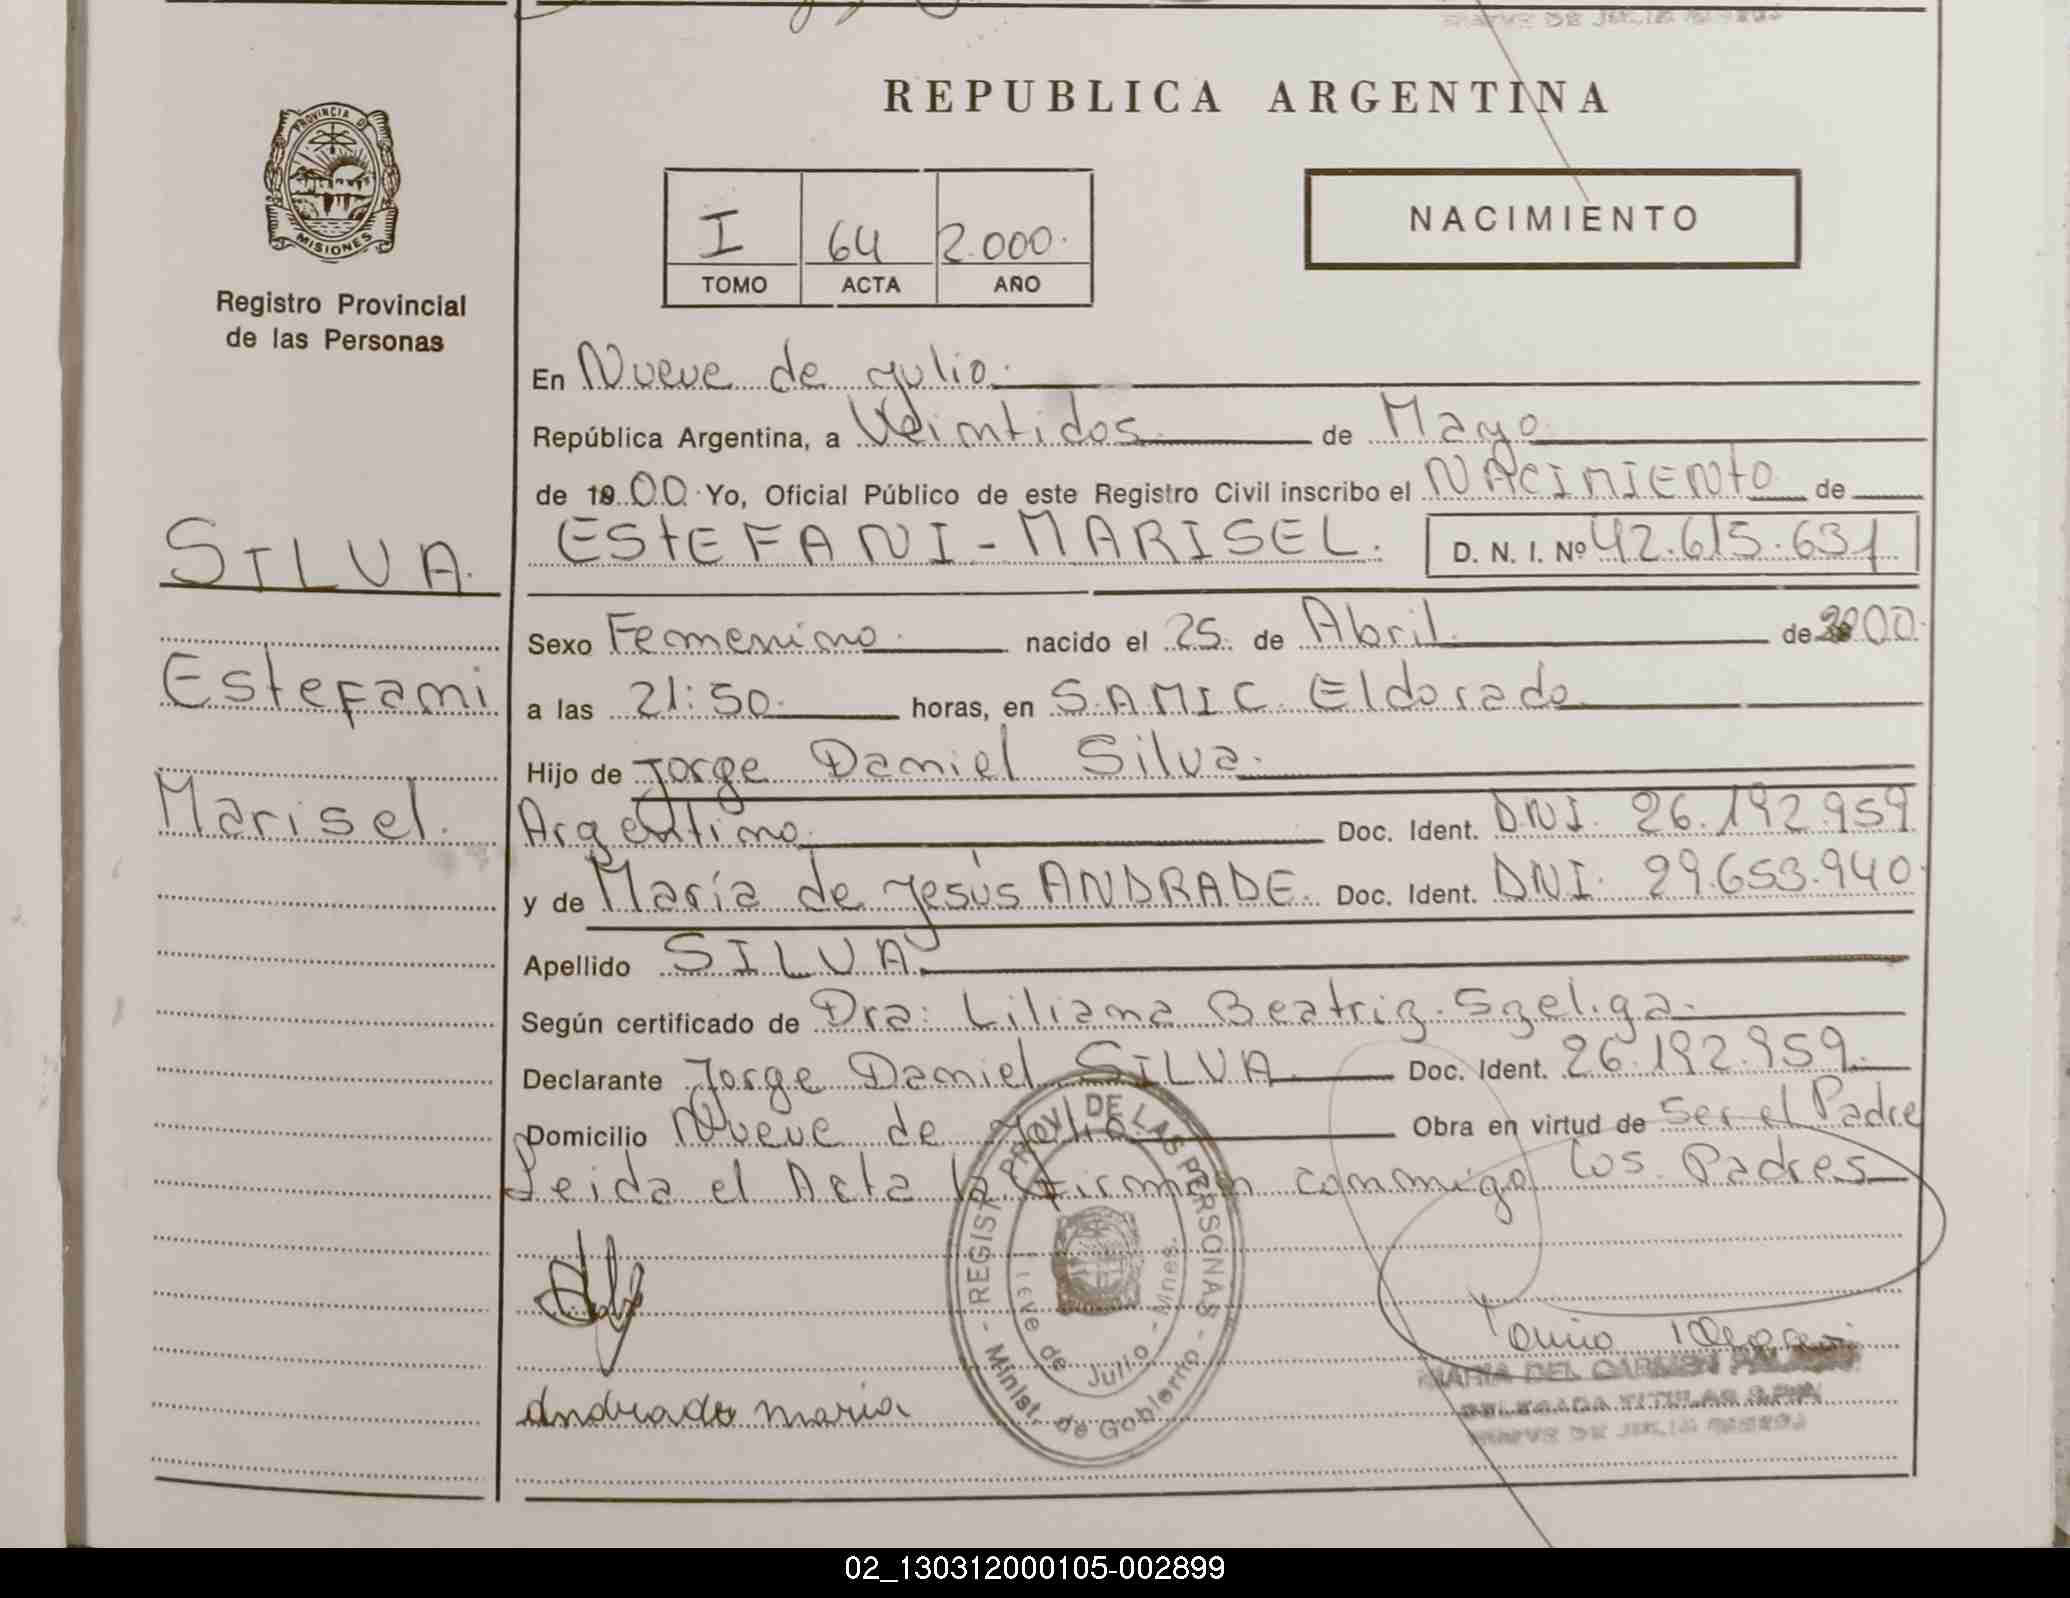 REPUBLICA ARGENTINA
PROVINCIA D
MISIONES
Registro Provincial
de las Personas
I 64 2.000.
TOMO ACTA AÑO
NACIMIENTO
En Nueve de Julio.
República Argentina, a Veintidos de Mayo
de 19 00. Yo, Oficial Público de este Registro Civil inscribo el NACIMIENTO de
SILVA.
ESTEFANI - MARISEL. D. N. I. Nº 42.615.631
Sexo Femenino. nacido el 25. de Abril. de 2000.
Estefani
a las 21:50. horas, en S.A.M.I.C. Eldorado
Hijo de Jorge Daniel Silva.
Marisel.
Argentino. Doc. Ident. DNI. 26.192.959
y de María de Jesús ANDRADE. Doc. Ident. DNI. 29.653.940.
Apellido SILVA
Según certificado de Dra: Liliana Beatriz Szeliga.
Declarante Jorge Daniel SILVA Doc. Ident. 26.192.959.
Domicilio Nueve de Julio Obra en virtud de Ser el Padre
Leida el Acta la firman conmigo los Padres
REGIST. PROV. DE LAS PERSONAS
de Julio - Mnes.
Minist. de Gobierno
MARIA DEL CARMEN
DELEGADA TITULAR
NUEVE DE JULIO
Andrade maria
02_130312000105-002899